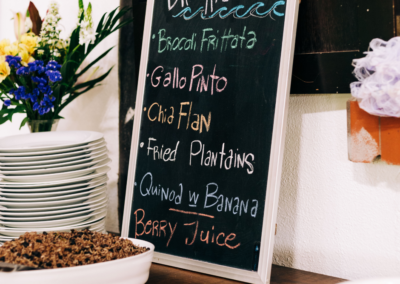 • Brocoli Frittata
• Gallo Pinto
• Chia Flan
• Fried Plantains
• Quinoa w Banana
Berry Juice